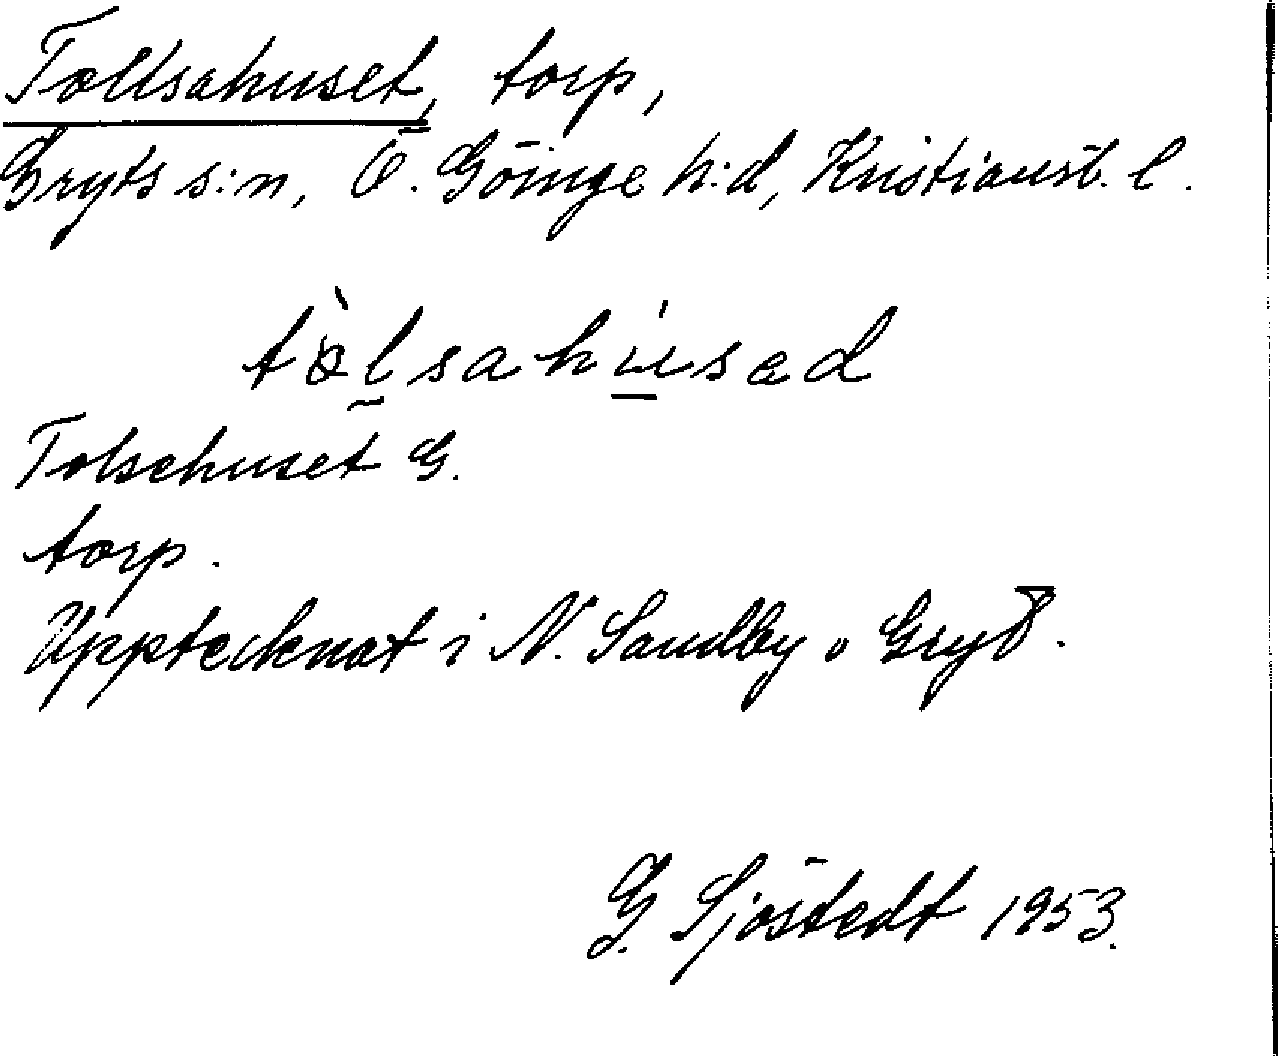 Tollsahuset, torp,
Gryts s:n, Ö. Göinge h:d, Kristianst. l.
tòlsahúsad
Tolsehuset G.
torp.
Upptecknat i N. Sandby o Gryt.
G. Sjöstedt 1953.